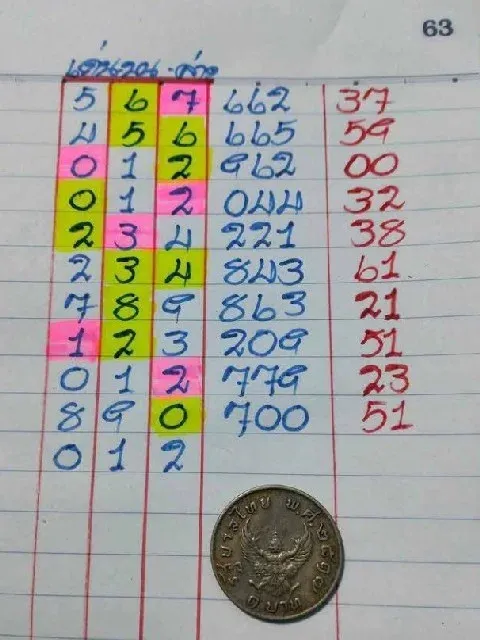 63
เด่นบน - ล่าง
5 6 7 662 37
4 5 6 665 59
0 1 2 962 00
0 1 2 044 32
2 3 4 221 38
2 3 4 843 61
7 8 9 863 21
1 2 3 209 51
0 1 2 779 23
8 9 0 700 51
0 1 2
รัฐบาลไทย พ.ศ.๒๕๑๗
๑ บาท